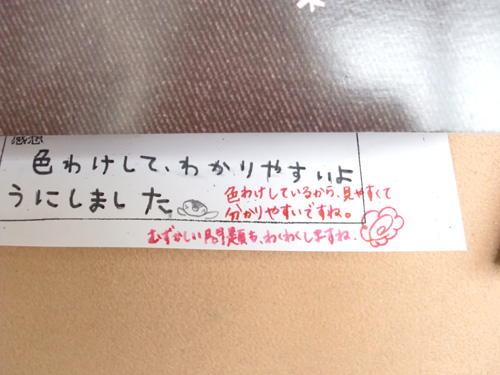 感想
色わけして、わかりやすいよ
うにしました。
色わけしているから、見やすくて
分かりやすいですね。
むずかしい問題も、わくわくしますね。